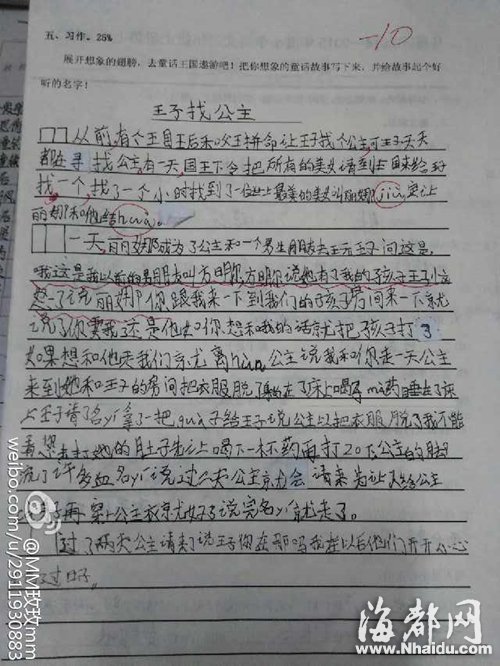 五、习作。26%
-10
展开想象的翅膀，去童话王国遨游吧！把你想象的童话故事写下来，并给故事起个好
听的名字！
王子找公主
从前,有个王国王后和国王拼命让王子找个公主可王子天天
都在寻找公主,有一天,国王下令把所有的美女请到上国来给王子
找一个,找了一个小时找到了位世上最美的美女叫丽娜,jiu要让
丽娜和他结hun。
一天,丽娜成为了公主和一个男生朋友去玩王子问这是,
哦这是我以前的男朋友叫方明,你方明说她有了我的孩子王子
了说丽娜你跟我来一下到我们的孩子房间来一下京尤
说了你要我这是他如你想和我的话就把孩子打了
如果想和他来我们京尤离hun公主说我和你走一天公主
来到她和王子的房间把衣服脱了躺在了床上喝了mi药睡在了床
上王子请了名yi拿了一把guà子给王子说公主以把衣服脱了我不能
看您去打她的肚子先让喝下一杯药再打20下公主的脚
流了许多血名yi说过公主京尤会请来为让人给公主
再穿上公主衣京尤好了说完名yi京尤走了。
过了两天公主请来了说王子你在那吗我在以后他们开开心心
过日子。
weibo.com/u/2911930883
@MM玫玫mm
海都网
www.Nhaidu.com